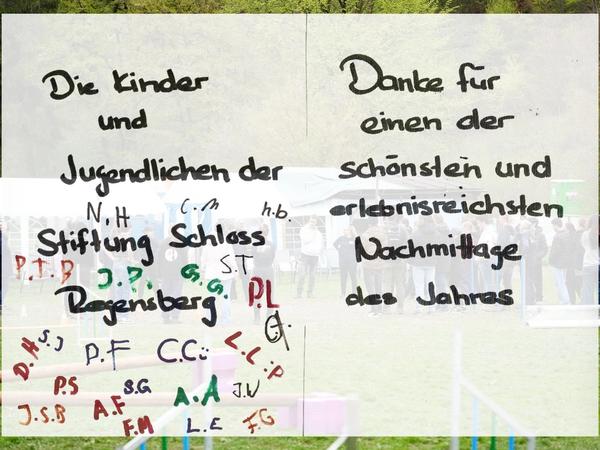 Die Kinder
und
Jugendlichen der
N.H C.M h.b.
Stiftung Schloss
P.T.B J.P. G.G. S.T
Regensberg P.L
D.H S.J P.F C.C. L.L.P
P.S S.G A.A J.V
J.S.B A.F F.M L.E F.G
Danke für
einen der
schönsten und
erlebnisreichsten
Nachmittage
des Jahres